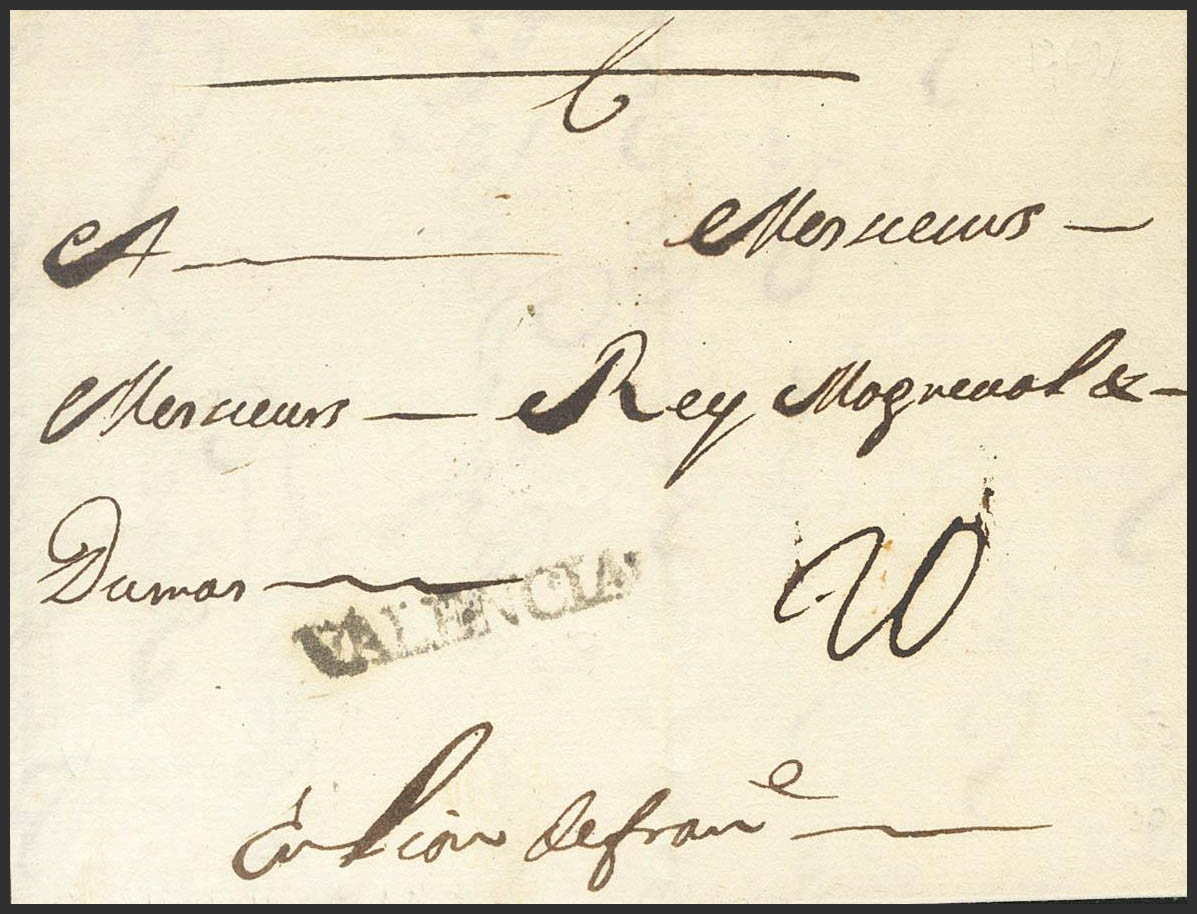 A Messieurs
Messieurs Rey Magneval &
Dumas
VALENCIA
20
En Lion de franc e